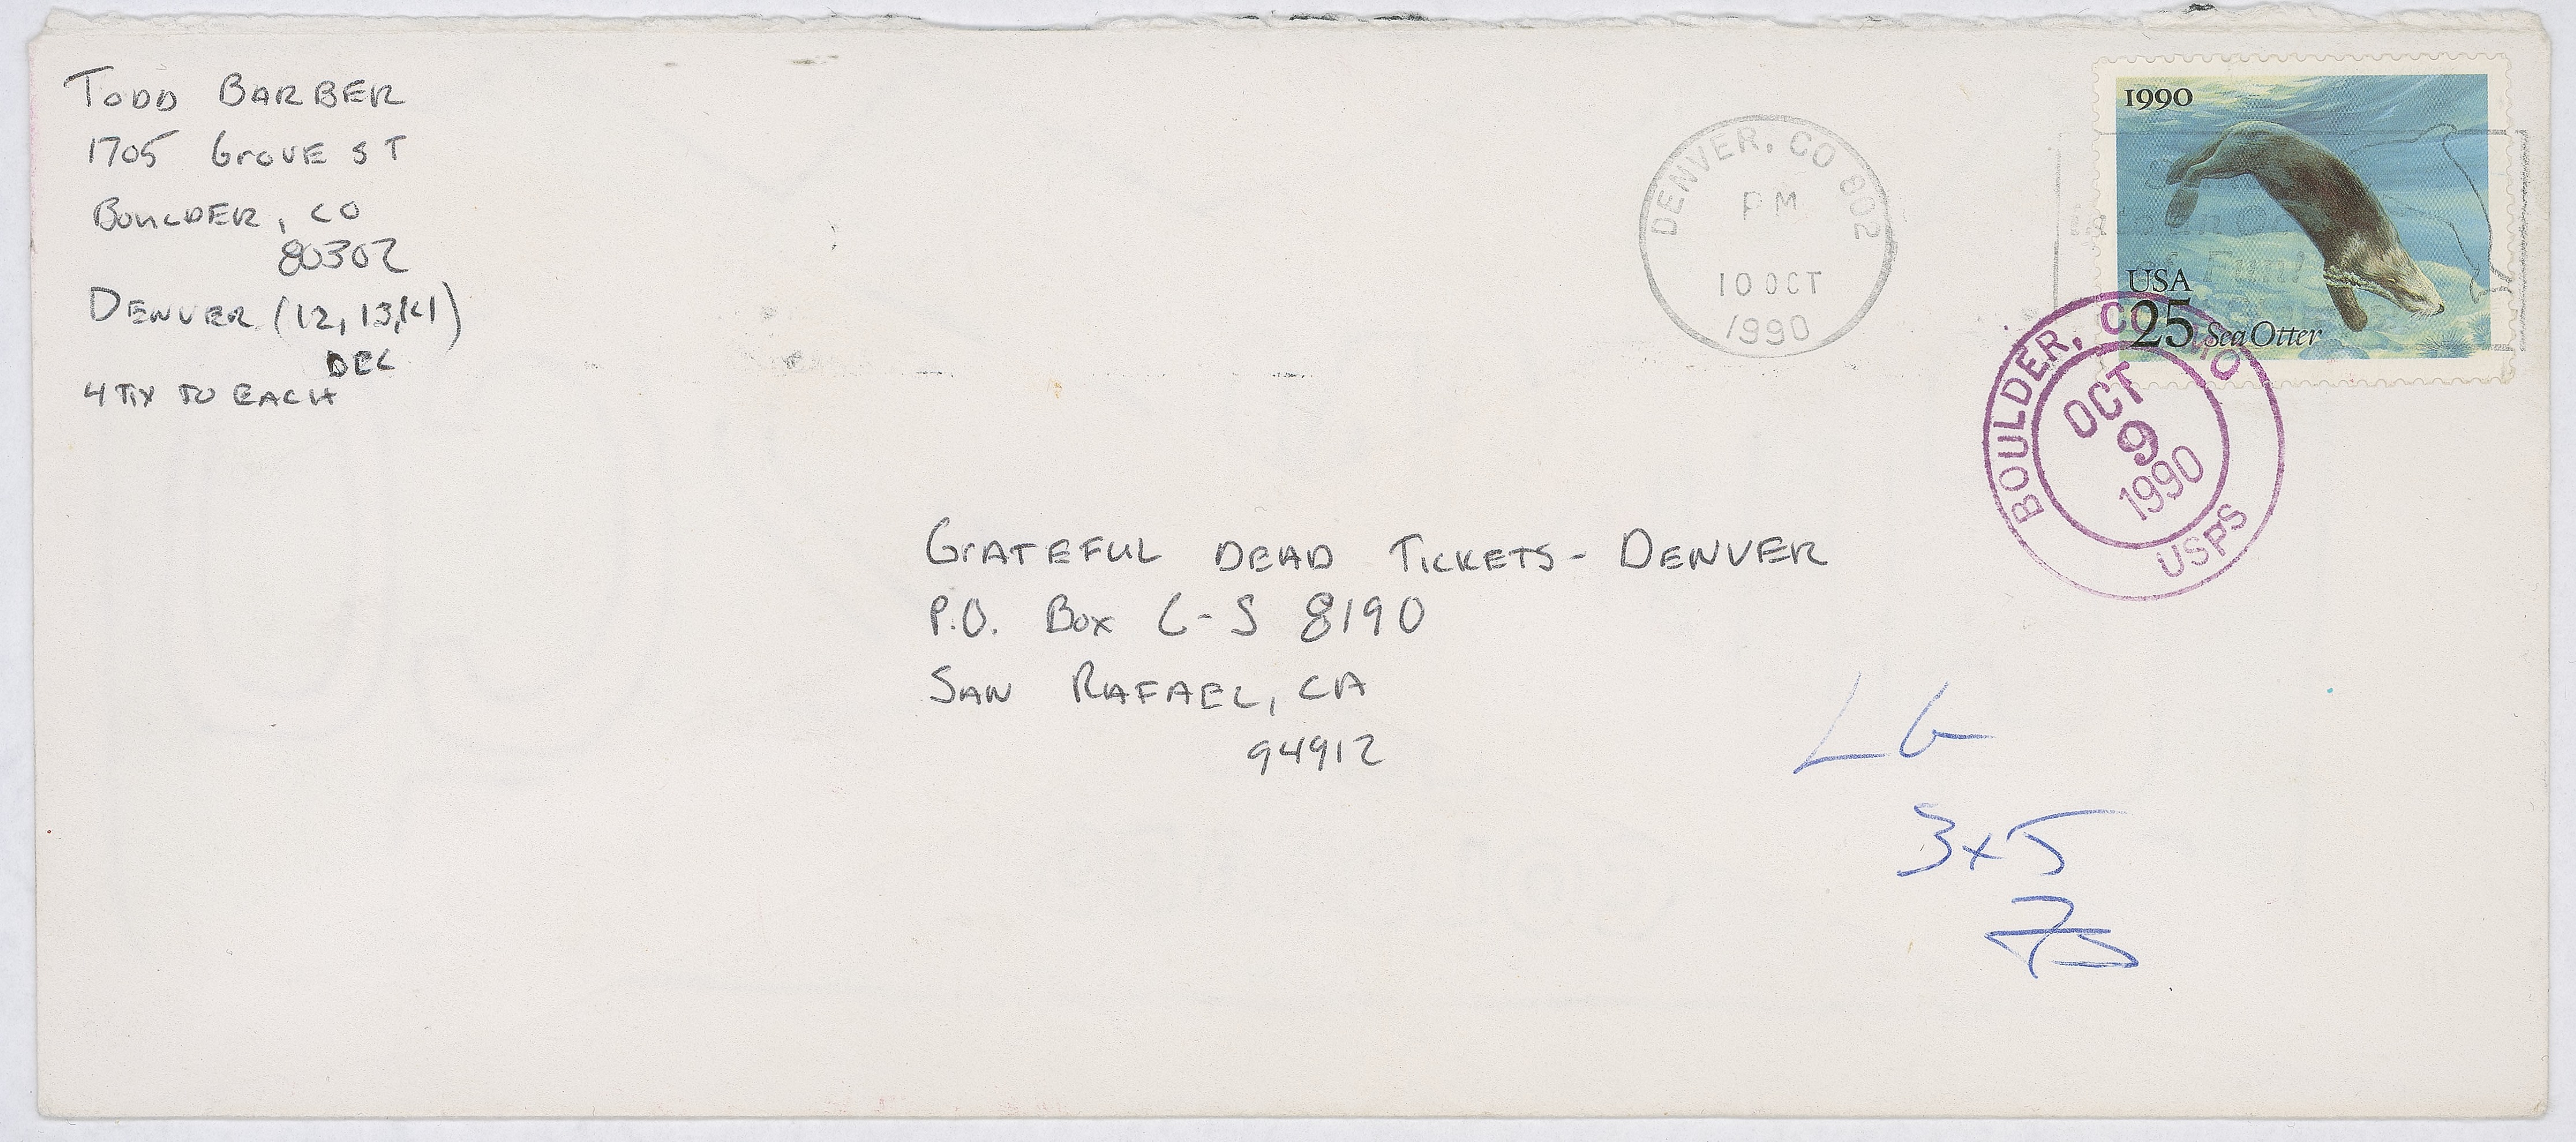 TODD BARBER
1705 GROVE ST
BOULDER, CO
80302
DENVER (12, 13, 14)
DEC
4 TIX TO EACH
DENVER, CO 802
PM
10 OCT
1990
1990
USA
25 Sea Otter
into an Oc
of Fun!
BOULDER, CO
OCT
9
1990
USPS
GRATEFUL DEAD TICKETS - DENVER
P.O. BOX C-S 8190
SAN RAFAEL, CA
94912
LG
3x5